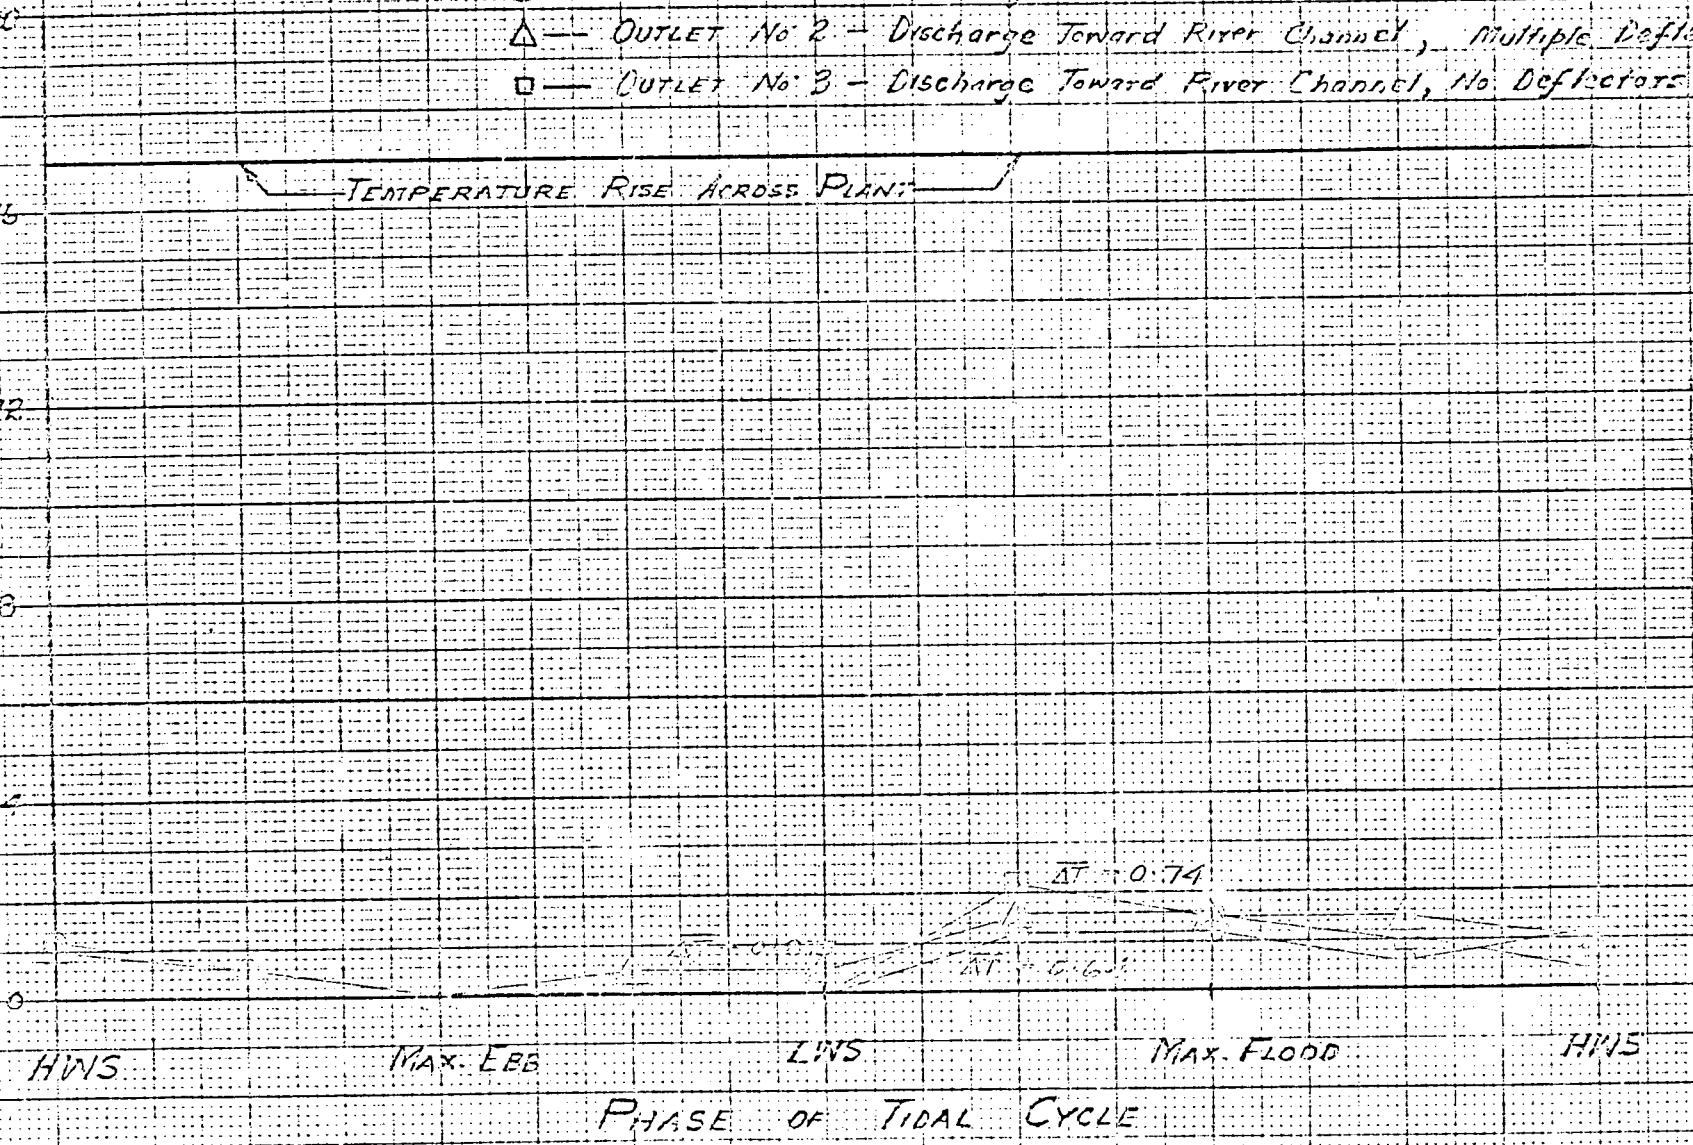 △ — OUTLET No 2 - Discharge Toward River Channel, Multiple
□ — OUTLET No 3 - Discharge Toward River Channel, No Deflectors
TEMPERATURE RISE ACROSS PLANT
12
8
4
ΔT = 0.74
ΔT
ΔT
0
HWS MAX. EBB LWS MAX. FLOOD HWS
PHASE OF TIDAL CYCLE